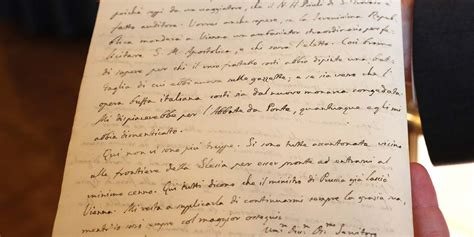 poichè oggi da un viaggiatore, che il N. H. Pauli di
fatto auditore. Vorrei anche sapere, se la Serenissima Repub-
blica manderà a Vienna un ambasciator straordinario per fe-
licitare S. M. Apostolica, e che sarà l'eletto. Così bramo
di sapere per chi il vice prefetto costì abbia dipinto una bat-
taglia di cui ebbi nuova sulle gazzette; e se sia vero che l'
opera buffa italiana costì sia dal nuovo monarca congedata.
Mi dispiacerebbe per l'Abbate da Ponte, quantunque egli mi
abbia dimenticato.
Qui non vi sono più truppe. Si sono tutte accantonate vicino
alle frontiere della Slesia per esser pronte ad entrarvi al
minimo cenno. Qui tutti dicono che il ministro di Prussia già lasciò
Vienna. Mi resta a supplicarla di continuarmi sempre la grazia sua,
mentr'io sarò sempre col maggior ossequio
Um. Dv. Ob. Servitore